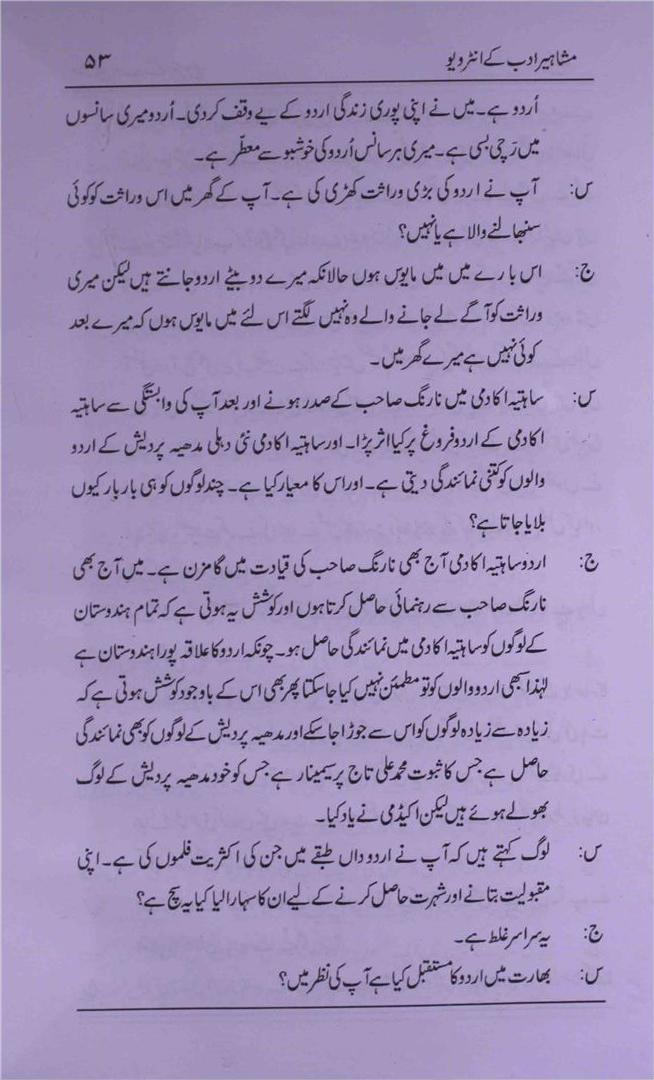 مشاہیر ادب کے انٹرویو ۵۳
اُردو ہے۔ میں نے اپنی پوری زندگی اردو کے لیے وقف کردی۔ اُردو میری سانسوں
میں رَچی بسی ہے۔ میری ہر سانس اُردو کی خوشبو سے معطّر ہے۔
س: آپ نے اردو کی بڑی وراثت کھڑی کی ہے۔ آپ کے گھر میں اس وراثت کو کوئی
سنبھالنے والا ہے یا نہیں؟
ج: اس بارے میں میں مایوس ہوں حالانکہ میرے دو بیٹے اردو جانتے ہیں لیکن میری
وراثت کو آگے لے جانے والے وہ نہیں لگتے اس لئے میں مایوس ہوں کہ میرے بعد
کوئی نہیں ہے میرے گھر میں۔
س: ساہتیہ اکادمی میں نارنگ صاحب کے صدر ہونے اور بعد آپ کی وابستگی سے ساہتیہ
اکادمی کے اردو فروغ پر کیا اثر پڑا۔ اور ساہتیہ اکادمی نئی دہلی مدھیہ پردیش کے اردو
والوں کو کتنی نمائندگی دیتی ہے۔ اور اس کا معیار کیا ہے۔ چند لوگوں کو ہی بار بار کیوں
بلایا جاتا ہے؟
ج: اردو ساہتیہ اکادمی آج بھی نارنگ صاحب کی قیادت میں گامزن ہے۔ میں آج بھی
نارنگ صاحب سے رہنمائی حاصل کرتا ہوں اور کوشش یہ ہوتی ہے کہ تمام ہندوستان
کے لوگوں کو ساہتیہ اکادمی میں نمائندگی حاصل ہو۔ چونکہ اردو کا علاقہ پورا ہندوستان ہے
لہٰذا سبھی اردو والوں کو تو مطمئن نہیں کیا جاسکتا پھر بھی اس کے باوجود کوشش ہوتی ہے کہ
زیادہ سے زیادہ لوگوں کو اس سے جوڑا جاسکے اور مدھیہ پردیش کے لوگوں کو بھی نمائندگی
حاصل ہے جس کا ثبوت محمد علی تاج پر سیمینار ہے جس کو خود مدھیہ پردیش کے لوگ
بھولے ہوئے ہیں لیکن اکیڈمی نے یاد کیا۔
س: لوگ کہتے ہیں کہ آپ نے اردو داں طبقے میں جن کی اکثریت فلموں کی ہے۔ اپنی
مقبولیت بتانے اور شہرت حاصل کرنے کے لیے ان کا سہارا لیا کیا یہ سچ ہے؟
ج: یہ سراسر غلط ہے۔
س: بھارت میں اردو کا مستقبل کیا ہے آپ کی نظر میں؟